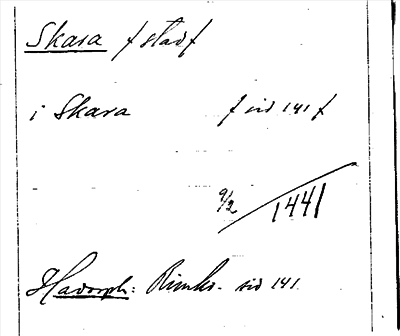 Skara f stad f
i Skara f sid 141 f
9/2 / 1441
Hadorph: Rimkr. sid 141.